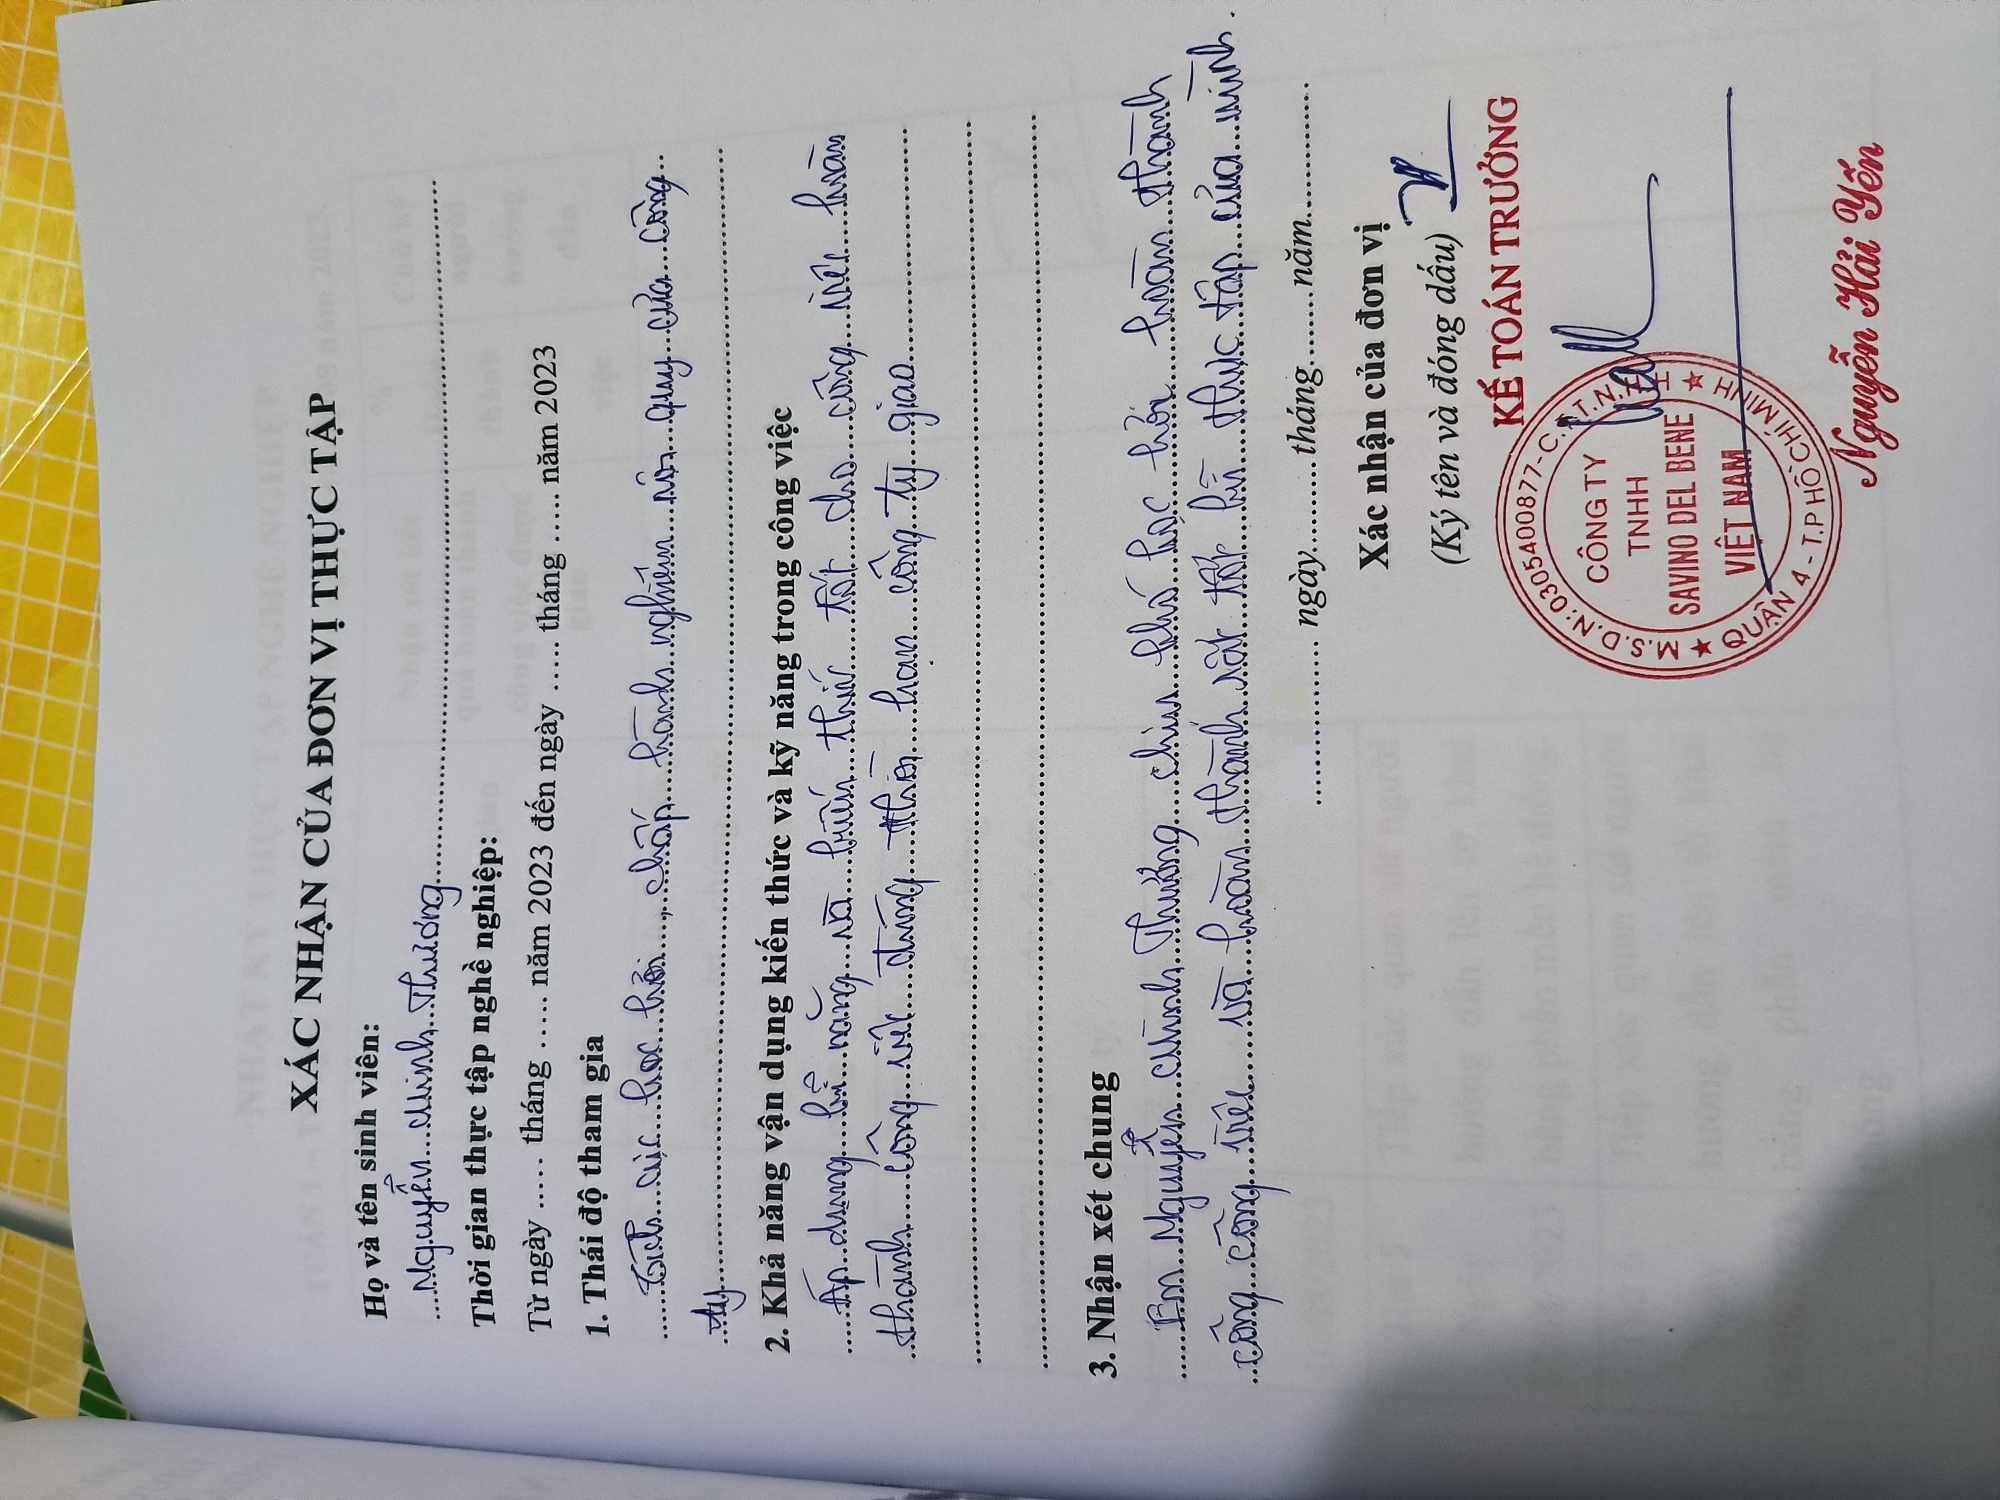 XÁC NHẬN CỦA ĐƠN VỊ THỰC TẬP
Họ và tên sinh viên:
Nguyễn Minh Thương
Thời gian thực tập nghề nghiệp:
Từ ngày ..... tháng ..... năm 2023 đến ngày ..... tháng ..... năm 2023
1. Thái độ tham gia
Tích cực học hỏi, chấp hành nghiêm nội quy của công
ty
2. Khả năng vận dụng kiến thức và kỹ năng trong công việc
Áp dụng kĩ năng và kiến thức tốt cho công việc hoàn
thành công việc đúng thời hạn công ty giao
3. Nhận xét chung
Em Nguyễn Minh Thương chịu khó học hỏi hoàn thành
công công việc và hoàn thành rất tốt kì thực tập của mình.
................ ngày.......... tháng........ năm..............
Xác nhận của đơn vị
(Ký tên và đóng dấu)
KẾ TOÁN TRƯỞNG
M.S.D.N: 0305400877 - C.T.T.N.H.H
CÔNG TY
TNHH
SAVINO DEL BENE
VIỆT NAM
QUẬN 4 - T.P HỒ CHÍ MINH
Nguyễn Hải Yến